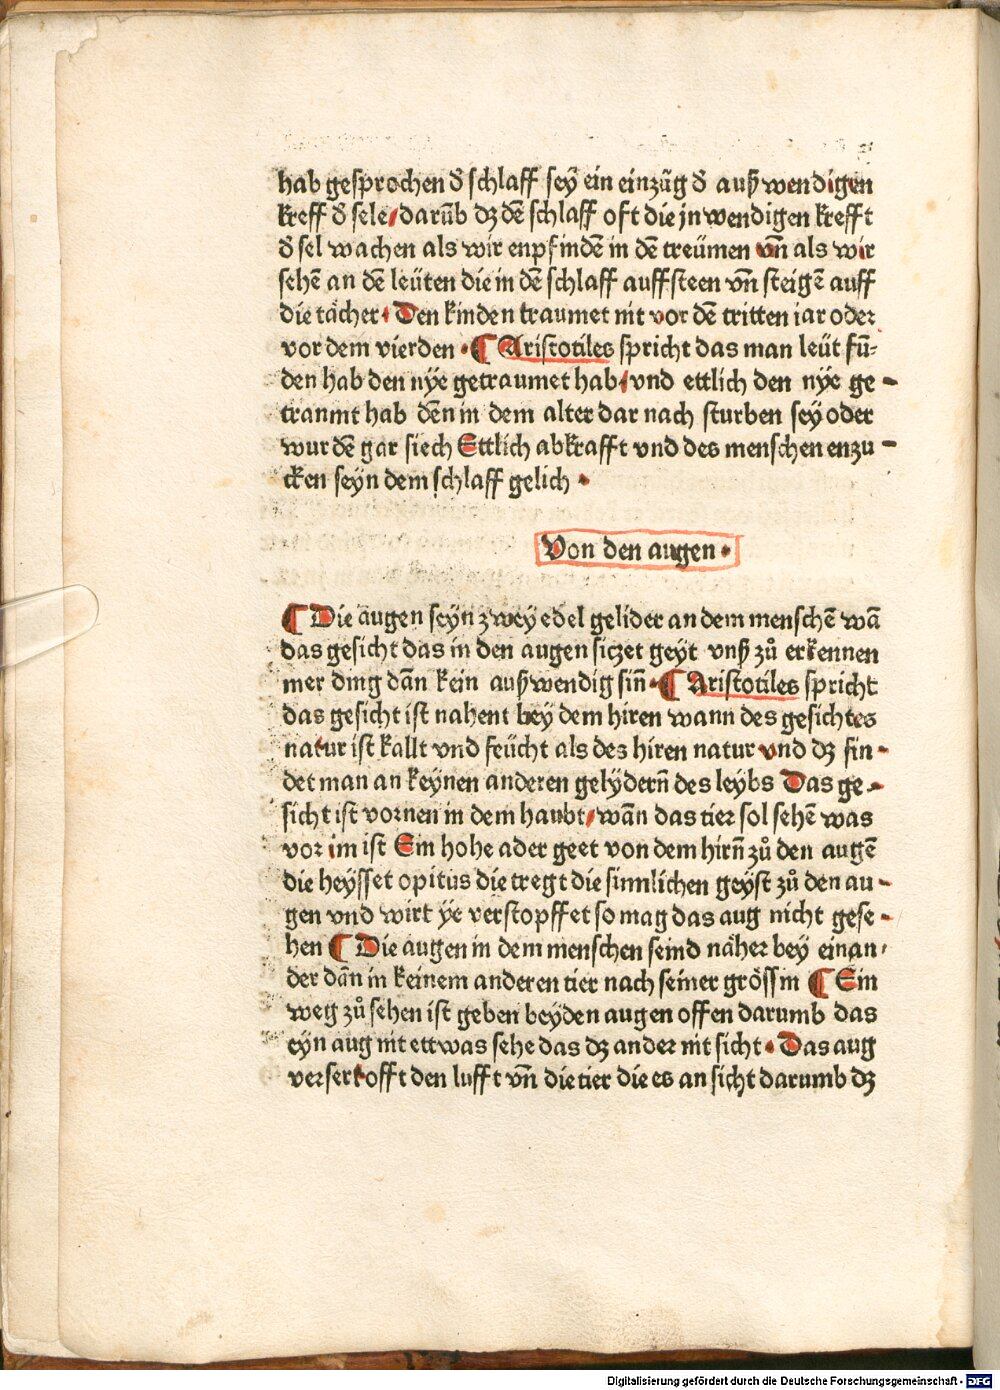 hab gesprochen d̕ schlaff sey ein einzüg d̕ außwendigen
kreff d̕ sele/ darūb dz dē schlaff oft die jnwendigen krefft
d̕ sel wachen als wir enpfindē in dē treümen vn̄ als wir
sehē an dē leüten die in dē schlaff auffsteen vn̄ steigē auff
die tächer· Den kinden traumet nit vor dē tritten iar oder
vor dem vierden · ¶ Aristotiles spricht das man leüt fü⸗
den hab den nye getraumet hab/ vnd ettlich den nye ge-
tranmt hab dēn in dem alter dar nach sturben sey oder
wurdē gar siech Ettlich abkrafft vnd des menschen enzu-
cken seyn dem schlaff gelich ·
Von den augen ·
¶ Die augen seyn zwey edel gelider an dem menschē wā
das gesicht das in den augen siczet geyt vnß zů erkennen
mer ding dān kein außwendig sin̄ · ¶ Aristotiles spricht
das gesicht ist nahent bey dem hiren wann des gesichtes
natur ist kallt vnd feücht als des hiren natur vnd dz fin-
det man an keynen anderen gelydern̄ des leybs Das ge-
sicht ist vornen in dem haubt/ wān das tier sol sehē was
vor im ist Ein hohe ader geet von dem hirn̄ zů den augē
die heysset opitus die tregt die sinnlichen geyst zů den au-
gen vnd wirt ye verstopffet so mag das aug nicht gese-
hen ¶ Die augen in dem menschen seind näher bey einan⸗
der dān in keinem anderen tier nach seiner grössin ¶ Ein
weg zů sehen ist geben beyden augen offen darumb das
eyn aug nit ettwas sehe das dz ander nit sicht · Das aug
versert offt den lufft vn̄ die tier die es an sicht darumb dz
Digitalisierung gefördert durch die Deutsche Forschungsgemeinschaft - DFG